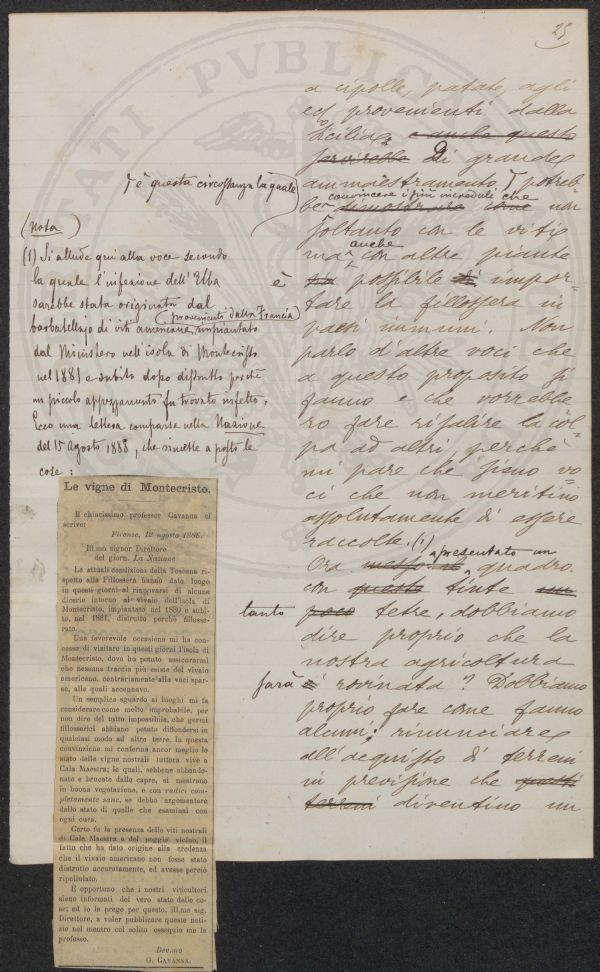 25
a cipolle, patate, agli
ecc provenienti dalla
Sicilia. e anche questo
servirebbe Di grande
ammaestramento, potreb-
┌ è questa circostanza la quale
convincere i più increduli che
be dimostrare come non
soltanto con le viti
ma anche con altre piante
è sia possibile di impor-
tare la fillossera in
paesi immuni. Non
parlo d'altre voci che
a questo proposito si
fanno e che vorrebbe
ro fare risalire la col-
pa ad altri perchè
mi pare che sieno vo
ci che non meritino
assolutamente di essere
raccolte. (1)
Ora presentato un quadro
con questo tinte
tanto poco tetre, dobbiamo
dire proprio che la
nostra agricoltura
sarà è rovinata? Dobbiamo
proprio fare come fanno
alcuni: rinunciare
all'acquisto di terreni
in previsione che questi
terreni diventino un
(nota)
(1) Si allude qui alla voce secondo
la quale l'infezione dell'Elba
sarebbe stata originata dal
(provenienti dalla Francia)
barbatellajo di viti americane, impiantato
dal Ministero nell'isola di Montecristo
nel 1881 e subito dopo distrutto perchè
un piccolo appezzamento fu trovato infetto.
Ecco una lettera comparsa nella Nazione
del 15 agosto 1888, che rimette a posto le
cose:
Le vigne di Montecristo.
Il chiarissimo professor Cavanna ci
scrive:
Firenze, 12 agosto 1888.
Ill.mo signor Direttore
del giorn. La Nazione
Le attuali condizioni della Toscana ri-
spetto alla Fillossera hanno dato luogo
in questi giorni al rinnovarsi di alcune
dicerie intorno al vivaio dell'isola di
Montecristo, impiantato nel 1880 e subi-
to, nel 1881, distrutto perchè fillosse-
rato.
Una favorevole occasione mi ha con-
cesso di visitare in questi giorni l'isola di
Montecristo, dove ho potuto assicurarmi
che nessuna traccia più esiste del vivaio
americano, contrariamente alle voci spar-
se, alle quali accennavo.
Un semplice sguardo ai luoghi mi fa
considerare come molto improbabile, per
non dire del tutto impossibile, che germi
fillosserici abbiano potuto diffondersi in
qualsiasi modo ad altre terre. In questa
convinzione mi conferma ancor meglio lo
stato delle vigne nostrali tuttora vive a
Cala Maestra; le quali, sebbene abbando-
nate e brucate dalle capre, si mostrano
in buona vegetazione, e con radici com-
pletamente sane, se debbo argomentare
dallo stato di quelle che esaminai con
ogni cura.
Certo fu la presenza delle viti nostrali
di Cala Maestra e del poggio vicino, il
fatto che ha dato origine alla credenza
che il vivaio americano non fosse stato
distrutto accuratamente, ed avesse perciò
ripullulato.
È opportuno che i nostri viticultori
siano informati del vero stato delle co-
se; ed io la prego per questo, ill.mo sig.
Direttore, a voler pubblicare queste noti-
zie nel mentre col solito ossequio me le
professo.
Dev.mo
G. CAVANNA.